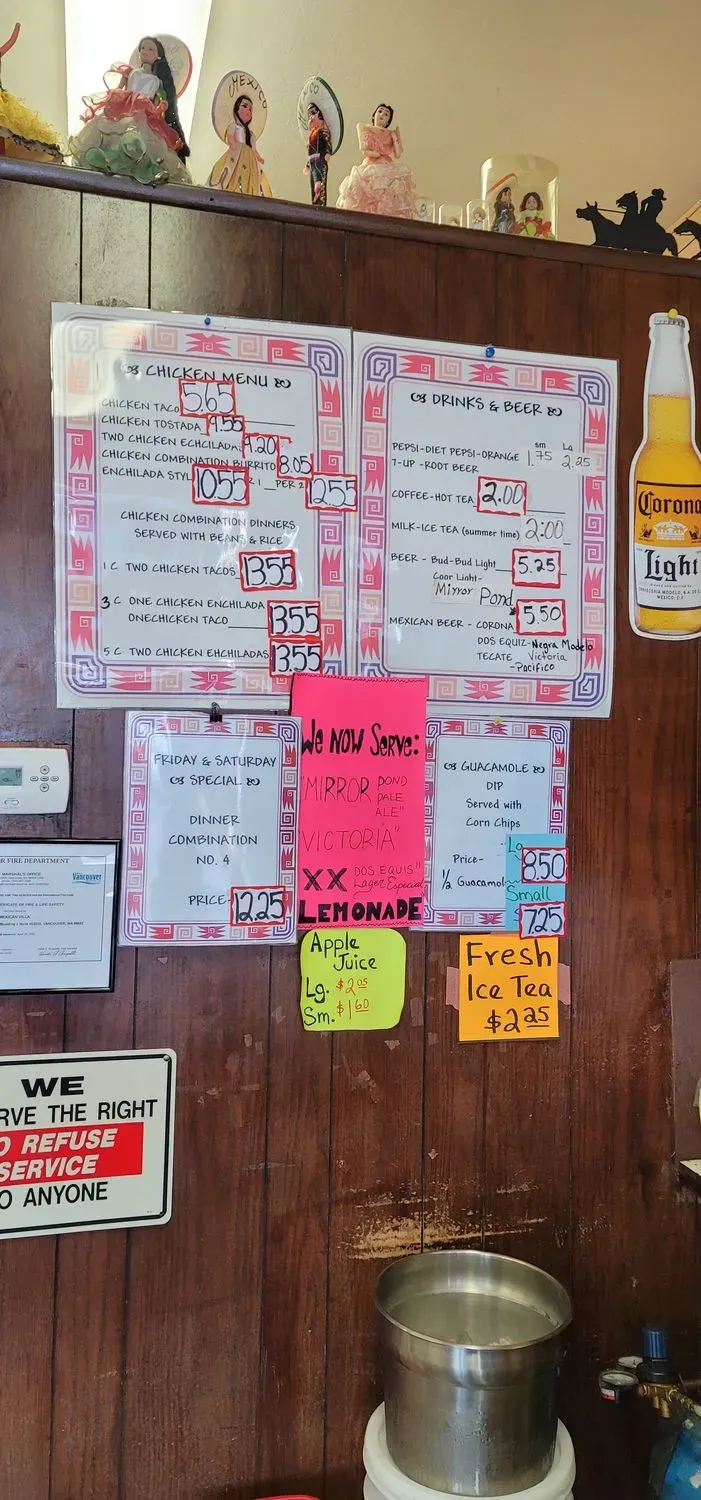 MEXICO
CHICKEN MENU
CHICKEN TACO 5.65
CHICKEN TOSTADA 9.55
TWO CHICKEN ECHCILADA 9.20
CHICKEN COMBINATION BURRITO 8.05
ENCHILADA STYL 10.55 R 1 PER 2 12.55
CHICKEN COMBINATION DINNERS
SERVED WITH BEANS & RICE
1 C TWO CHICKEN TACOS 13.55
3 C ONE CHICKEN ENCHILADA
ONECHICKEN TACO 13.55
5 C TWO CHICKEN EHCHILADAS 13.55
DRINKS & BEER
sm La
PEPSI-DIET PEPSI-ORANGE 1.75 2.25
7-UP -ROOT BEER
COFFEE-HOT TEA 2.00
MILK-ICE TEA (summer time) 2:00
BEER - Bud-Bud Light 5.25
Coor Light-
Mirror Pond
MEXICAN BEER - CORONA 5.50
DOS EQUIZ-Negra Modelo
TECATE Victoria
-Pacifico
Corona
Light
CERVECERIA MODELO, S.A. DE C.V.
MEXICO, D.F.
FRIDAY & SATURDAY
SPECIAL
DINNER
COMBINATION
NO. 4
PRICE- 12.25
We NOW Serve:
"MIRROR POND
PALE
ALE"
"VICTORIA"
XX DOS EQUIS"
Lager Especial
LEMONADE
GUACAMOLE
DIP
Served with
Corn Chips
Price- Lg 8.50
1/2 Guacamol
Small
7.25
Apple
Juice
Lg. $2.05
Sm. $1.60
Fresh
Ice Tea
$2.25
FIRE DEPARTMENT
MARSHAL'S OFFICE
Vancouver
CERTIFICATE OF FIRE & LIFE SAFETY
MEXICAN VILLA
WE
RVE THE RIGHT
O REFUSE
SERVICE
O ANYONE